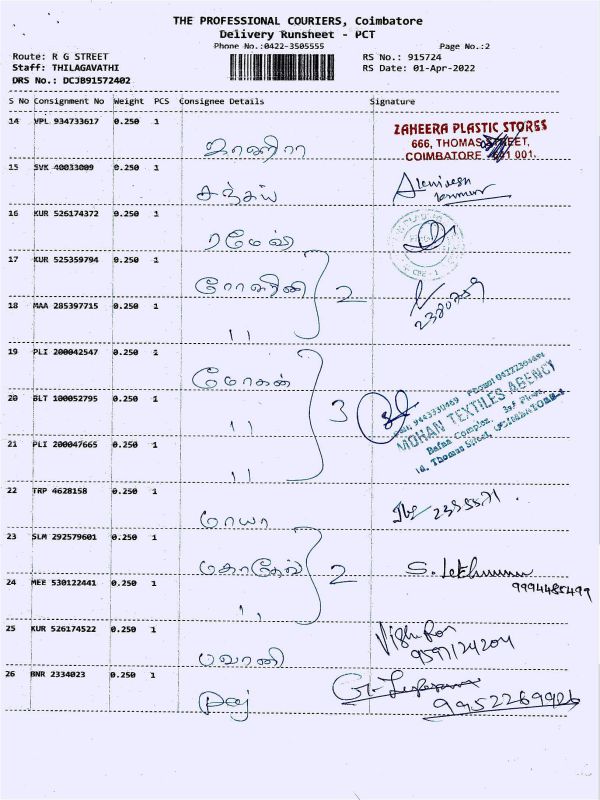 THE PROFESSIONAL COURIERS, Coimbatore
Delivery Runsheet - PCT
Phone No.:0422-3505555
Page No.:2
Route: R G STREET
RS No.: 915724
Staff: THILAGAVATHI
RS Date: 01-Apr-2022
DRS No.: DCJB91572402
S No Consignment No Weight PCS Consignee Details Signature
14 VPL 934733617 0.250 1
ZAHEERA PLASTIC STORES
666, THOMAS STREET,
COIMBATORE - 641 001.
15 SVK 40033009 0.250 1
சஞ்சய்
16 KUR 526174372 0.250 1
ரமேஷ்
17 KUR 525359794 0.250 1
ரோஹினி 2
18 MAA 285397715 0.250 1
,,
19 PLI 200042547 0.250 1
மோகன்
20 BLT 100052795 0.250 1
,, 3
MOHAN TEXTILES AGENCY
Bafna Complex
Thomas Street,
21 PLI 200047665 0.250 1
,,
22 TRP 4628158 0.250 1
மாயா
23 SLM 292579601 0.250 1
மகாதேவ் 2
24 MEE 530122441 0.250 1
,,
9994485499
25 KUR 526174522 0.250 1
பவானி
9597124204
26 BNR 2334023 0.250 1
9952269906